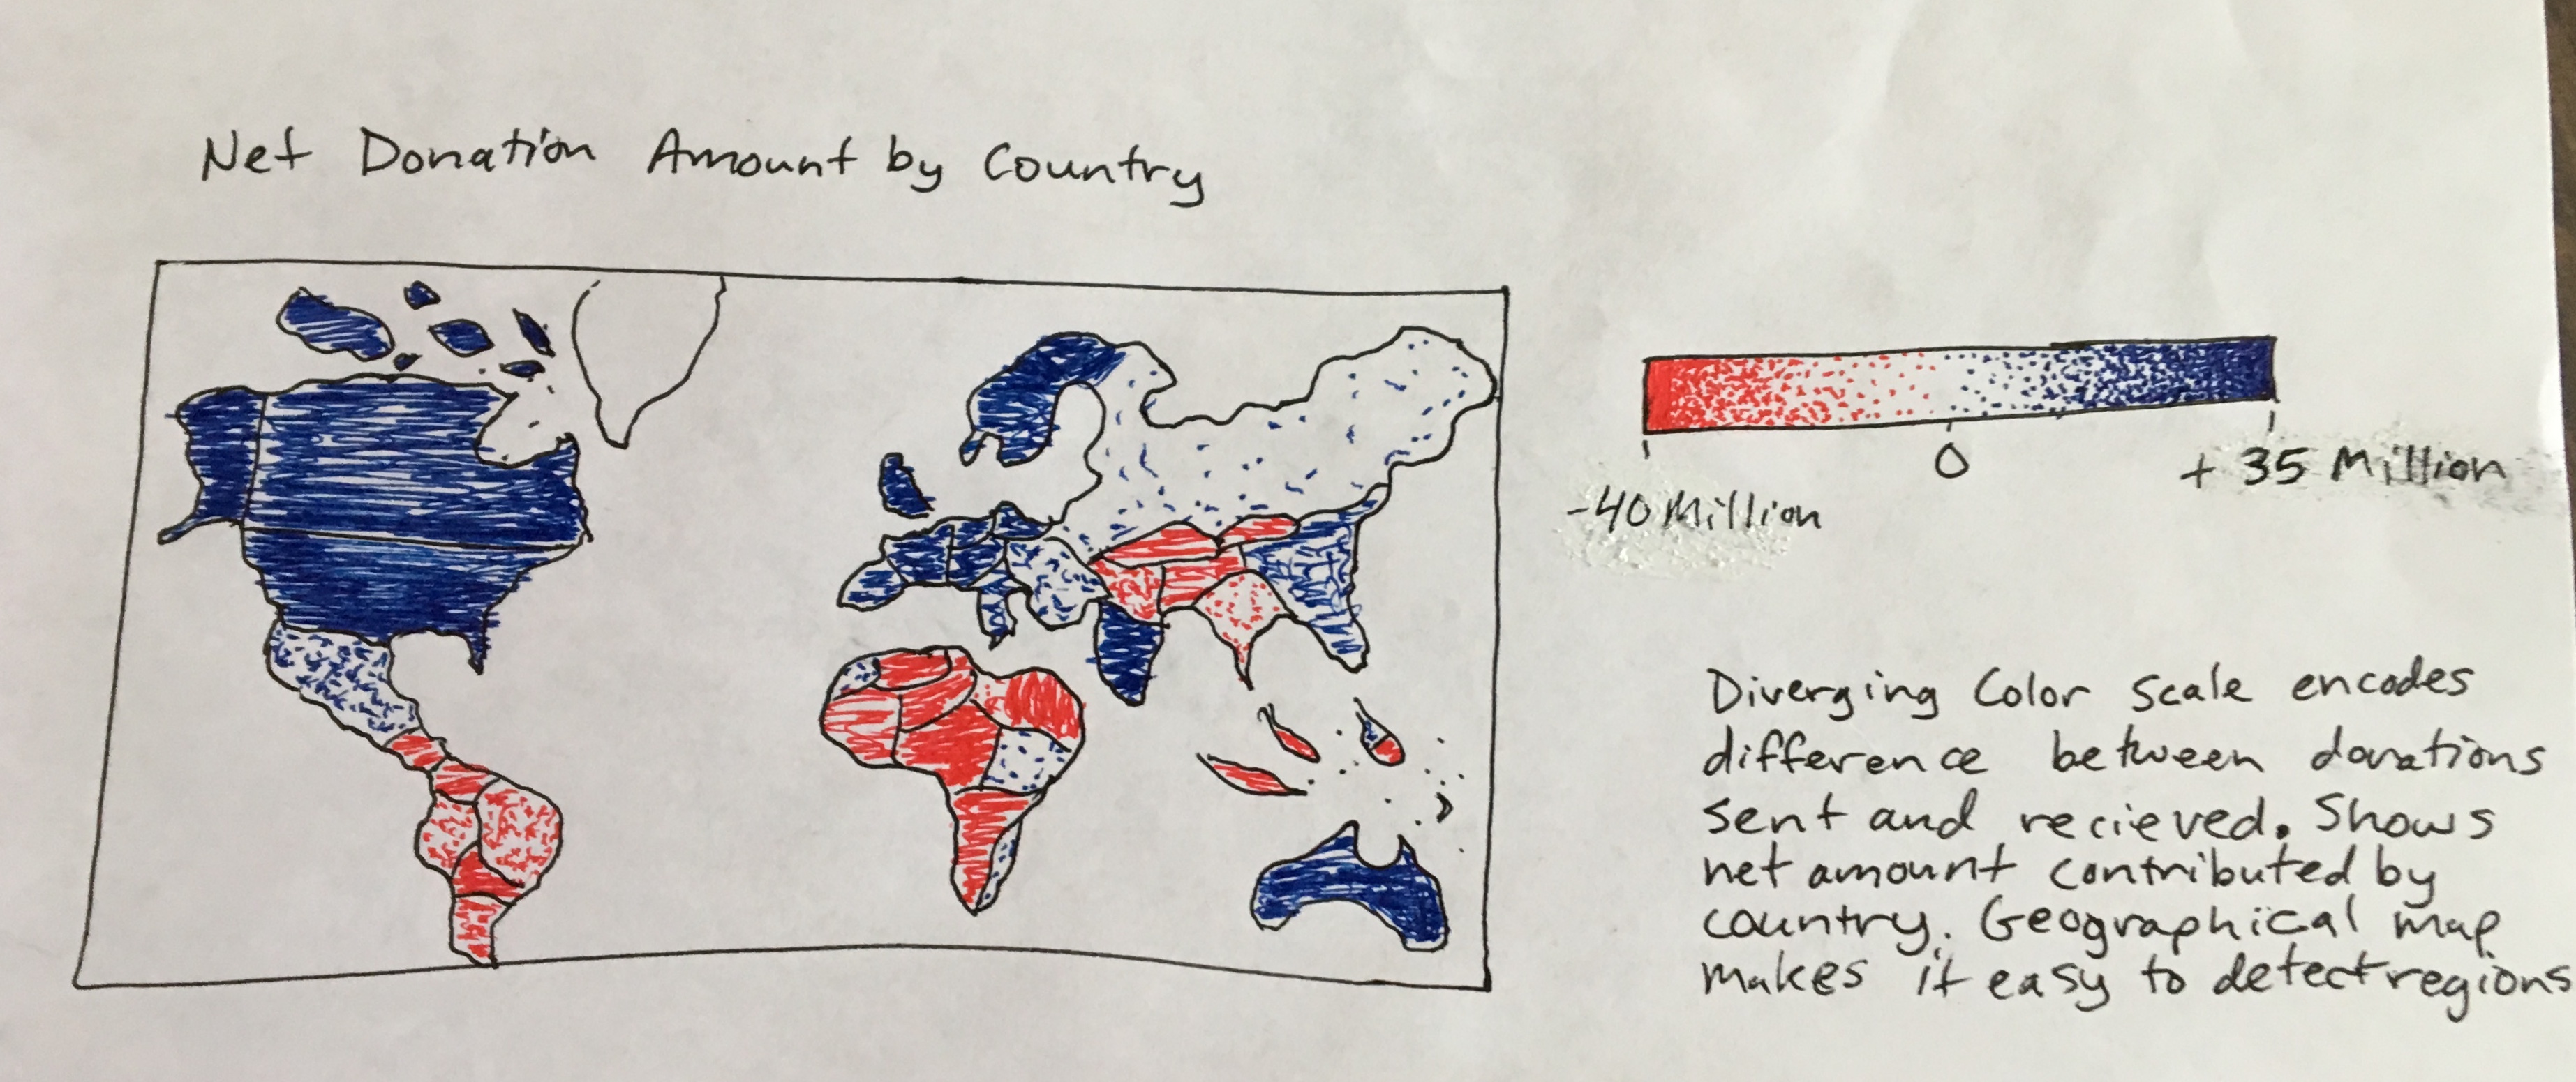 Net Donation Amount by Country
-40 Million
0
+ 35 Million
Diverging Color scale encodes
difference between donations
sent and recieved. Shows
net amount contributed by
country. Geographical map
makes it easy to detect regions